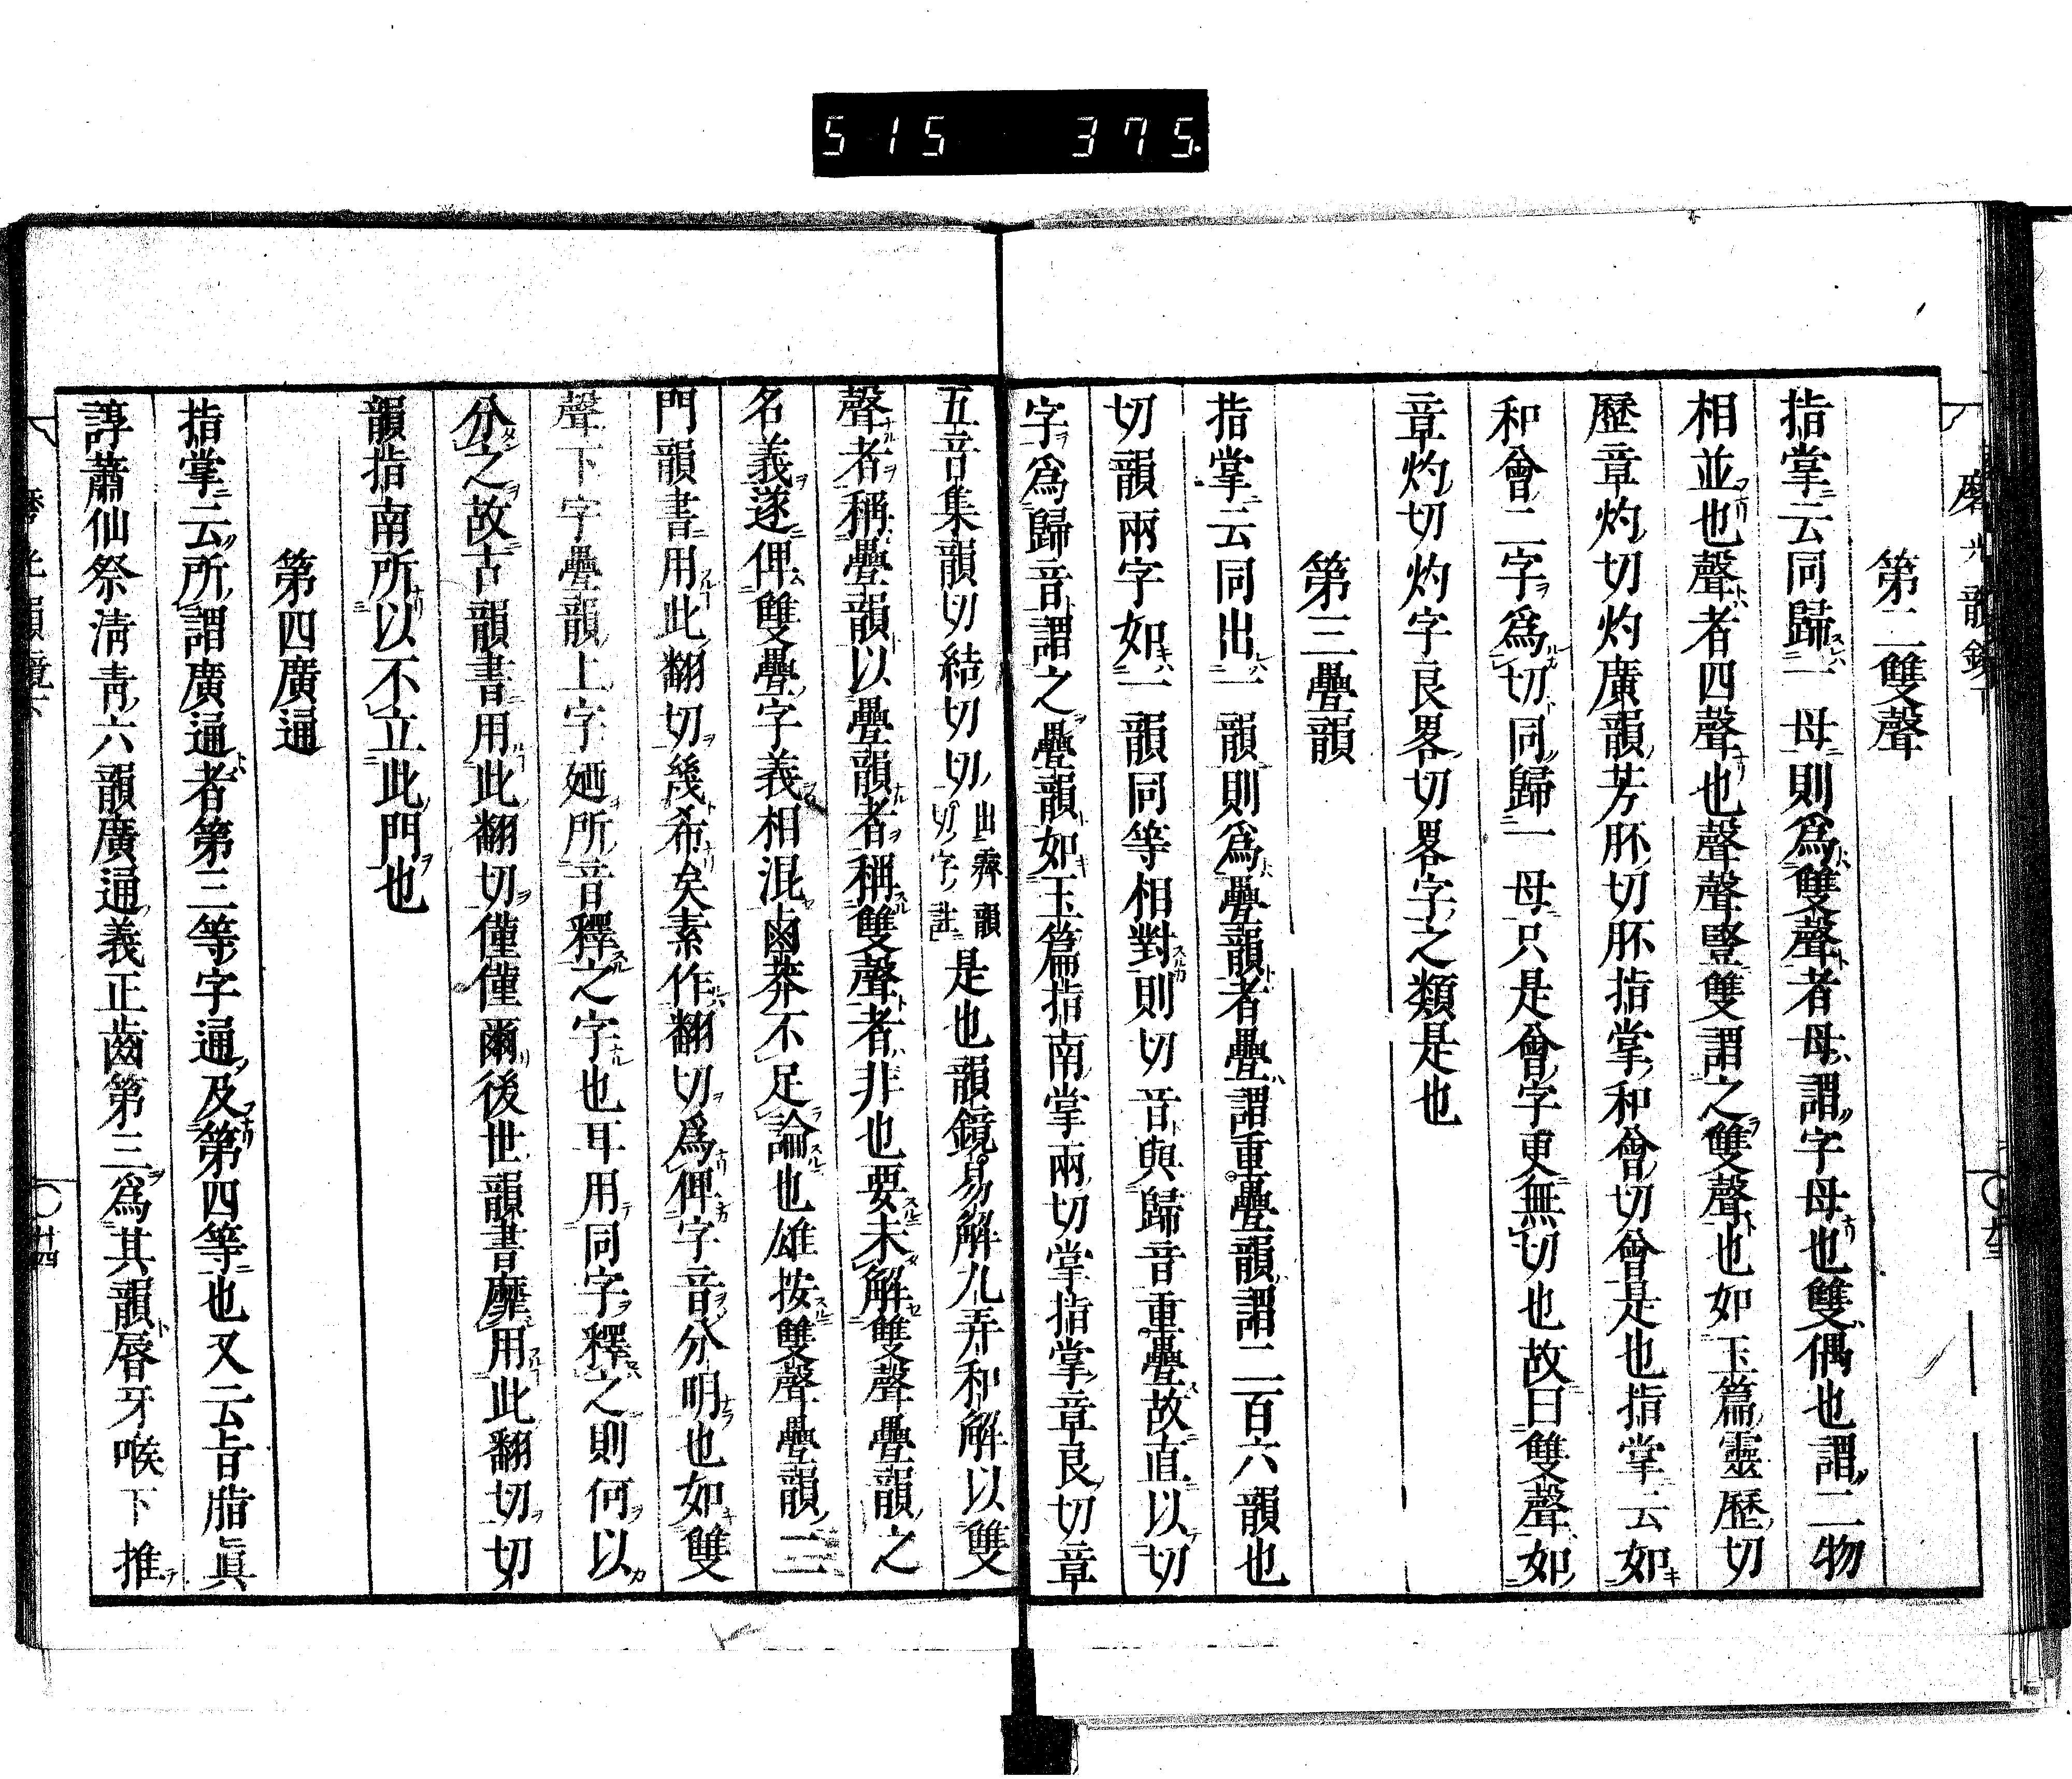 515 375.
磨光韻鏡下
第二雙聲
指掌云同歸一母則爲雙聲者母謂字母也雙偶也謂二物
相並也聲者四聲也聲聲豎雙謂之雙聲也如玉篇靈歷切
歷章灼切灼廣韻芳肧切肧指掌和會切會是也指掌云如
和會二字爲切同歸一母只是會字更無切也故曰雙聲如
章灼切灼字良畧切畧字之類是也
第三疊韻
指掌云同出一韻則爲疊韻者疊謂重疊韻謂二百六韻也
切韻兩字如一韻同等相對則切音與歸音重疊故直以切
字爲歸音謂之疊韻如玉篇指南掌兩切掌指掌章良切章
五音集韻切結切切出霽韻切字註是也韻鏡易解九弄和解以雙
聲者稱疊韻以疊韻者稱雙聲者非也要未解雙聲疊韻之
名義遂俾雙疊字義相混鹵莽不足論也雄按雙聲疊韻二
門韻書用此翻切幾希矣素作翻切爲俾字音分明也如雙
聲下字疊韻上字廼所音釋之字也耳用同字釋之則何以
分之故古韻書用此翻切僅僅爾後世韻書靡用此翻切切
韻指南所以不立此門也
第四廣通
指掌云所謂廣通者第三等字通及第四等也又云旨脂眞
諄蕭仙祭淸靑六韻廣通義正齒第三爲其韻脣牙喉下推
廿四